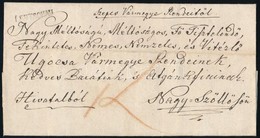 Szepes Vármegye Rendeitől
Nagy Méltóságú, Méltóságos, Fő Tisztelendő,
Tekintetes, Nemes, Nemzetes, és Vitézlő
Ugocsa Vármegye Rendeinek,
kedves Barátink, s Atyánkfiainak.
Hivatalból Nagy-Szöllősön